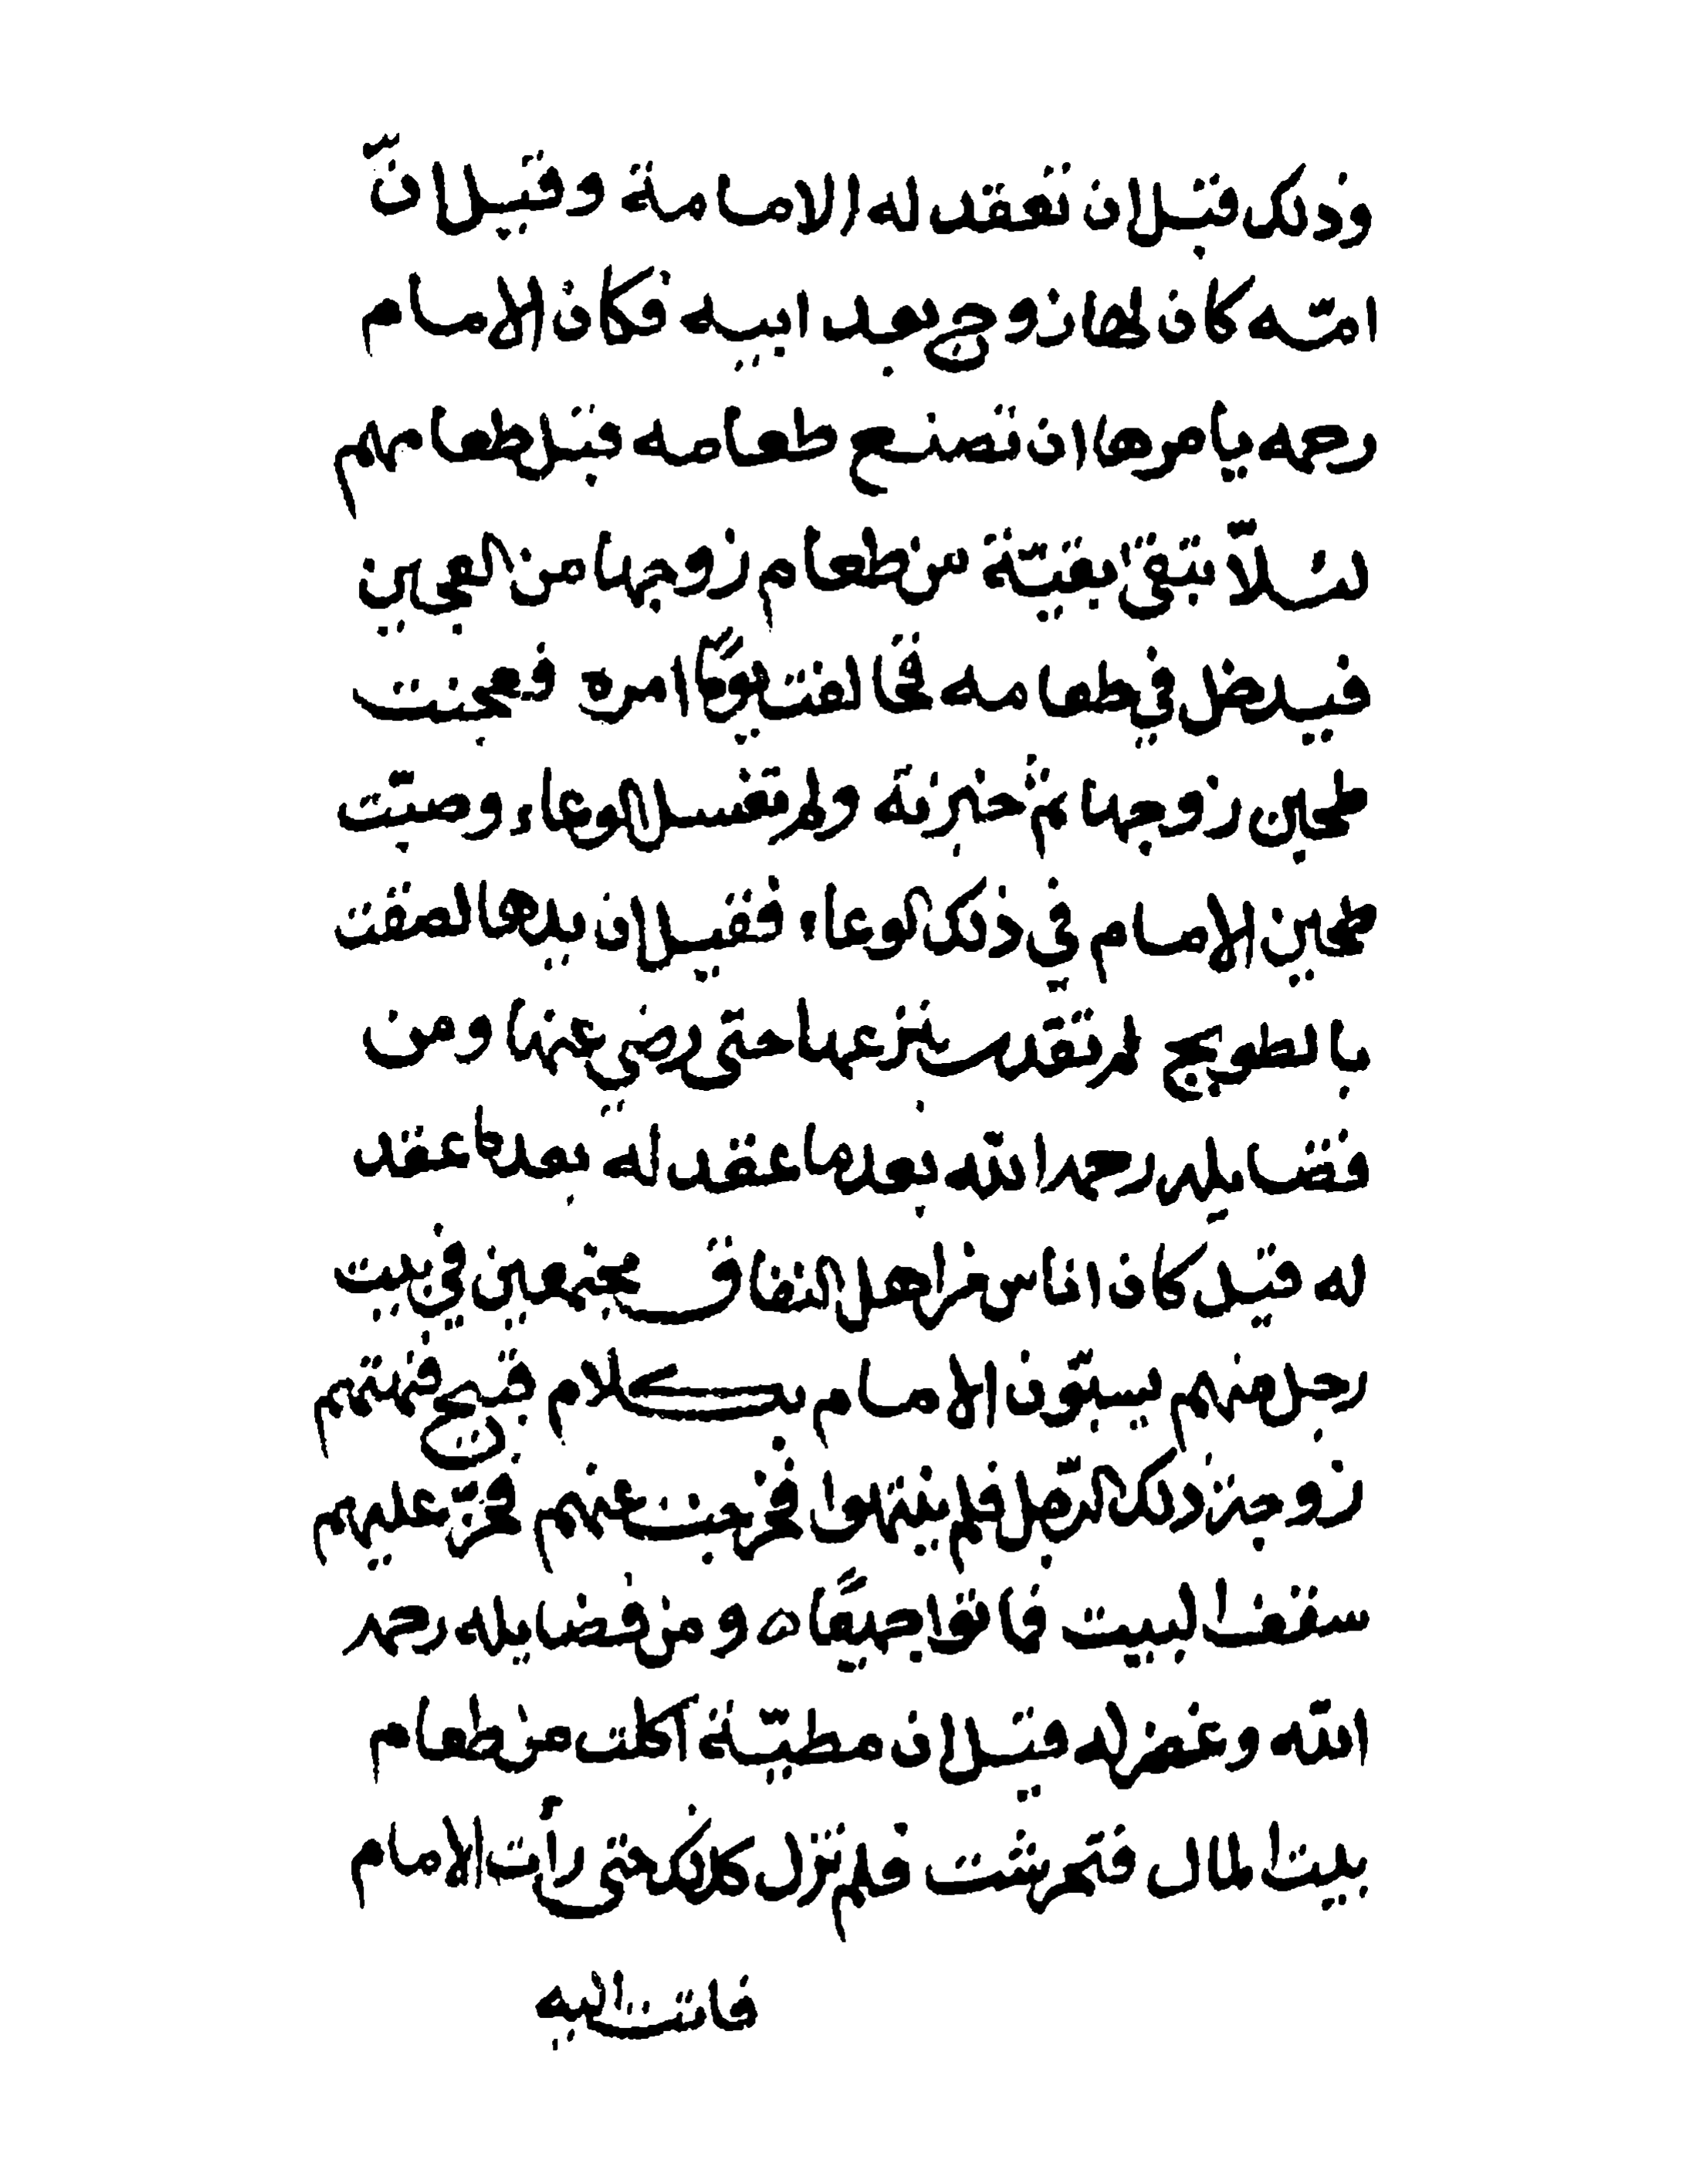 وذلك قبل ان تعقد له الامامة وقيل انّ
امّه كان لها زوج بعد ابيه فكان الامام
رحمه يامرها ان تصنع طعامه قبل طعامهم
لئلاّ تبقى بقيّة من طعام زوجها من العجين
فيدخل في طعامه فخالفت يومًا امره فعجنت
طحين زوجها ثم خبزته ولم تغسل الوعاء وصبّت
طحين الامام في ذلك الوعاء فقيل ان يدها لصقت
بالطوبج لم تقدر تنزعها حتى رضي عنها ومن
فضايله رحمه الله بعد ما عقد له بعد ما عقد
له قيل كان اناس من اهل النفاق مجتمعين في بيت
رجل منهم يسبّون الامام بكلام قبيح فنهتهم
زوجة ذلك الرّجل فلم ينتهوا فخرجت عنهم فخرّ عليهم
سقف البيت فماتوا جميعًا ه ومن فضايله رحمه
الله وغفر له قيل ان مطيّة اكلت من طعام
بيت المال فتمرشت فلم تزل كذلك حتى رأت الامام
فاتت اليه